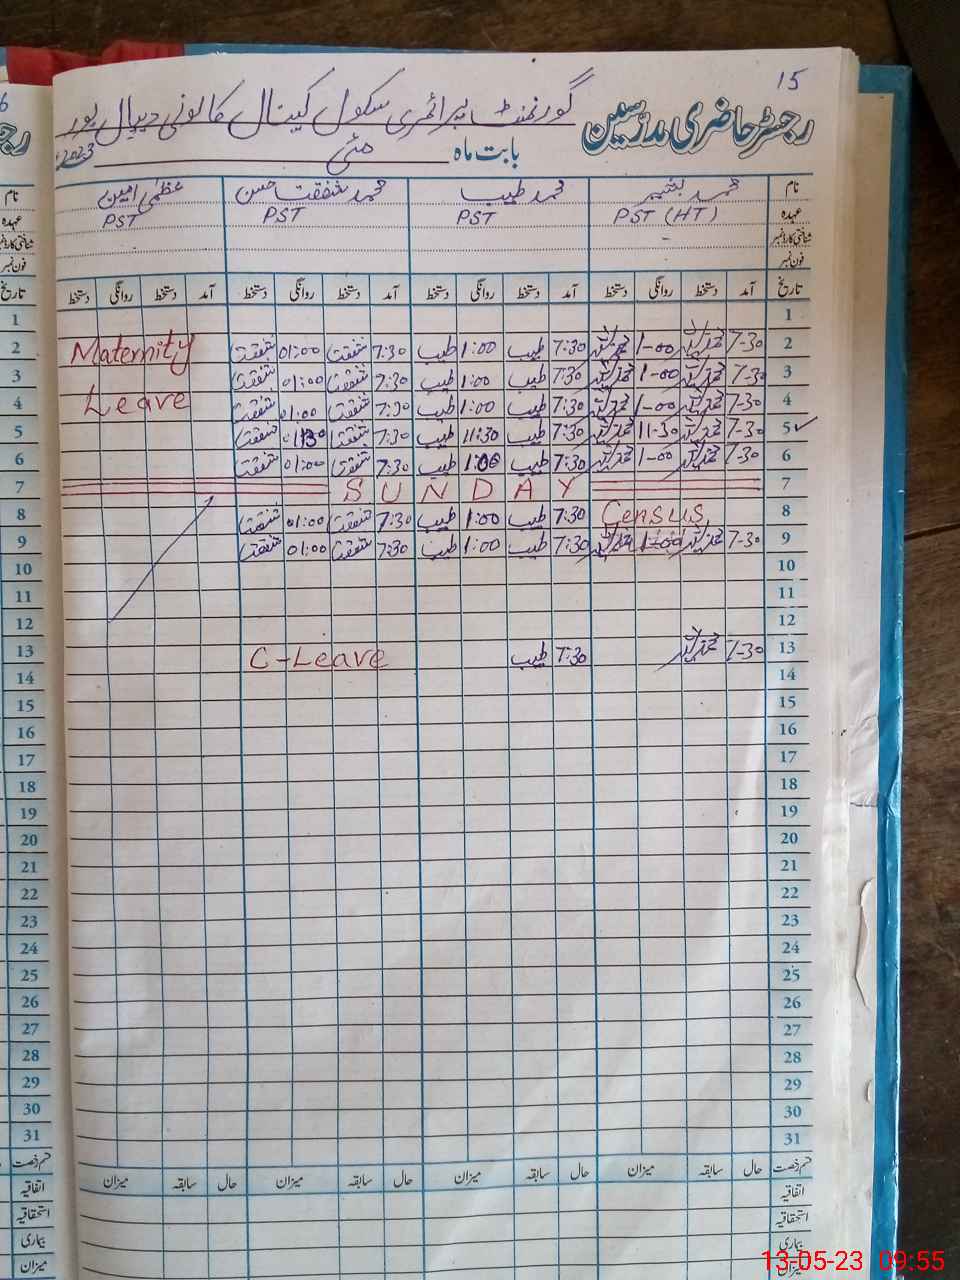 15
رجسٹر حاضری مدرسین گورنمنٹ پرائمری سکول کینال کالونی دیپال پور
بابت ماہ مئی 2023
نام محمد بشیر محمد طیب محمد شفقت حسن عظمیٰ امین
عہدہ PST (HT) PST PST PST
شناختی کارڈ نمبر -
فون نمبر
تاریخ آمد دستخط روانگی دستخط آمد دستخط روانگی دستخط آمد دستخط روانگی دستخط آمد دستخط روانگی دستخط
1
2 7-30 1-00 7:30 طیب 1:00 طیب 7:30 شفقت 01:00 شفقت Maternity
3 7-30 1-00 7:30 طیب 1:00 طیب 7:30 شفقت 01:00 شفقت
4 7-30 1-00 7:30 طیب 1:00 طیب 7:30 شفقت 01:00 شفقت Leave
5 7-30 11-30 7:30 طیب 11:30 طیب 7:30 شفقت شفقت
6 7-30 1-00 7:30 طیب 1:00 طیب 7:30 شفقت 01:00 شفقت
7 SUNDAY
8 Census 7:30 طیب 1:00 طیب 7:30 شفقت 01:00 شفقت
9 7-30 1-00 7:30 طیب 1:00 طیب 7:30 شفقت 01:00 شفقت
10
11
12
13 7-30 7:30 طیب C-Leave
14
15
16
17
18
19
20
21
22
23
24
25
26
27
28
29
30
31
قسم رخصت حال سابقہ میزان حال سابقہ میزان حال سابقہ میزان حال سابقہ میزان
اتفاقیہ
استحقاقیہ
بیماری
میزان
13-05-23 09:55